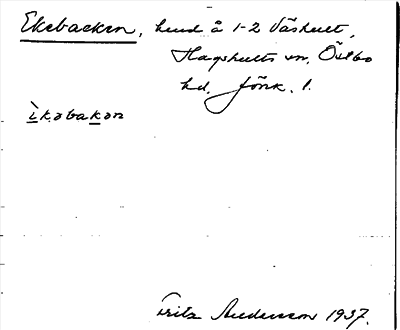 Ekebacken, hemd å 1-2 Väshult,
Hagshults sn, Östbo
hd. Jönk. l.
ìkəbakən
Fritz Andersson 1937.